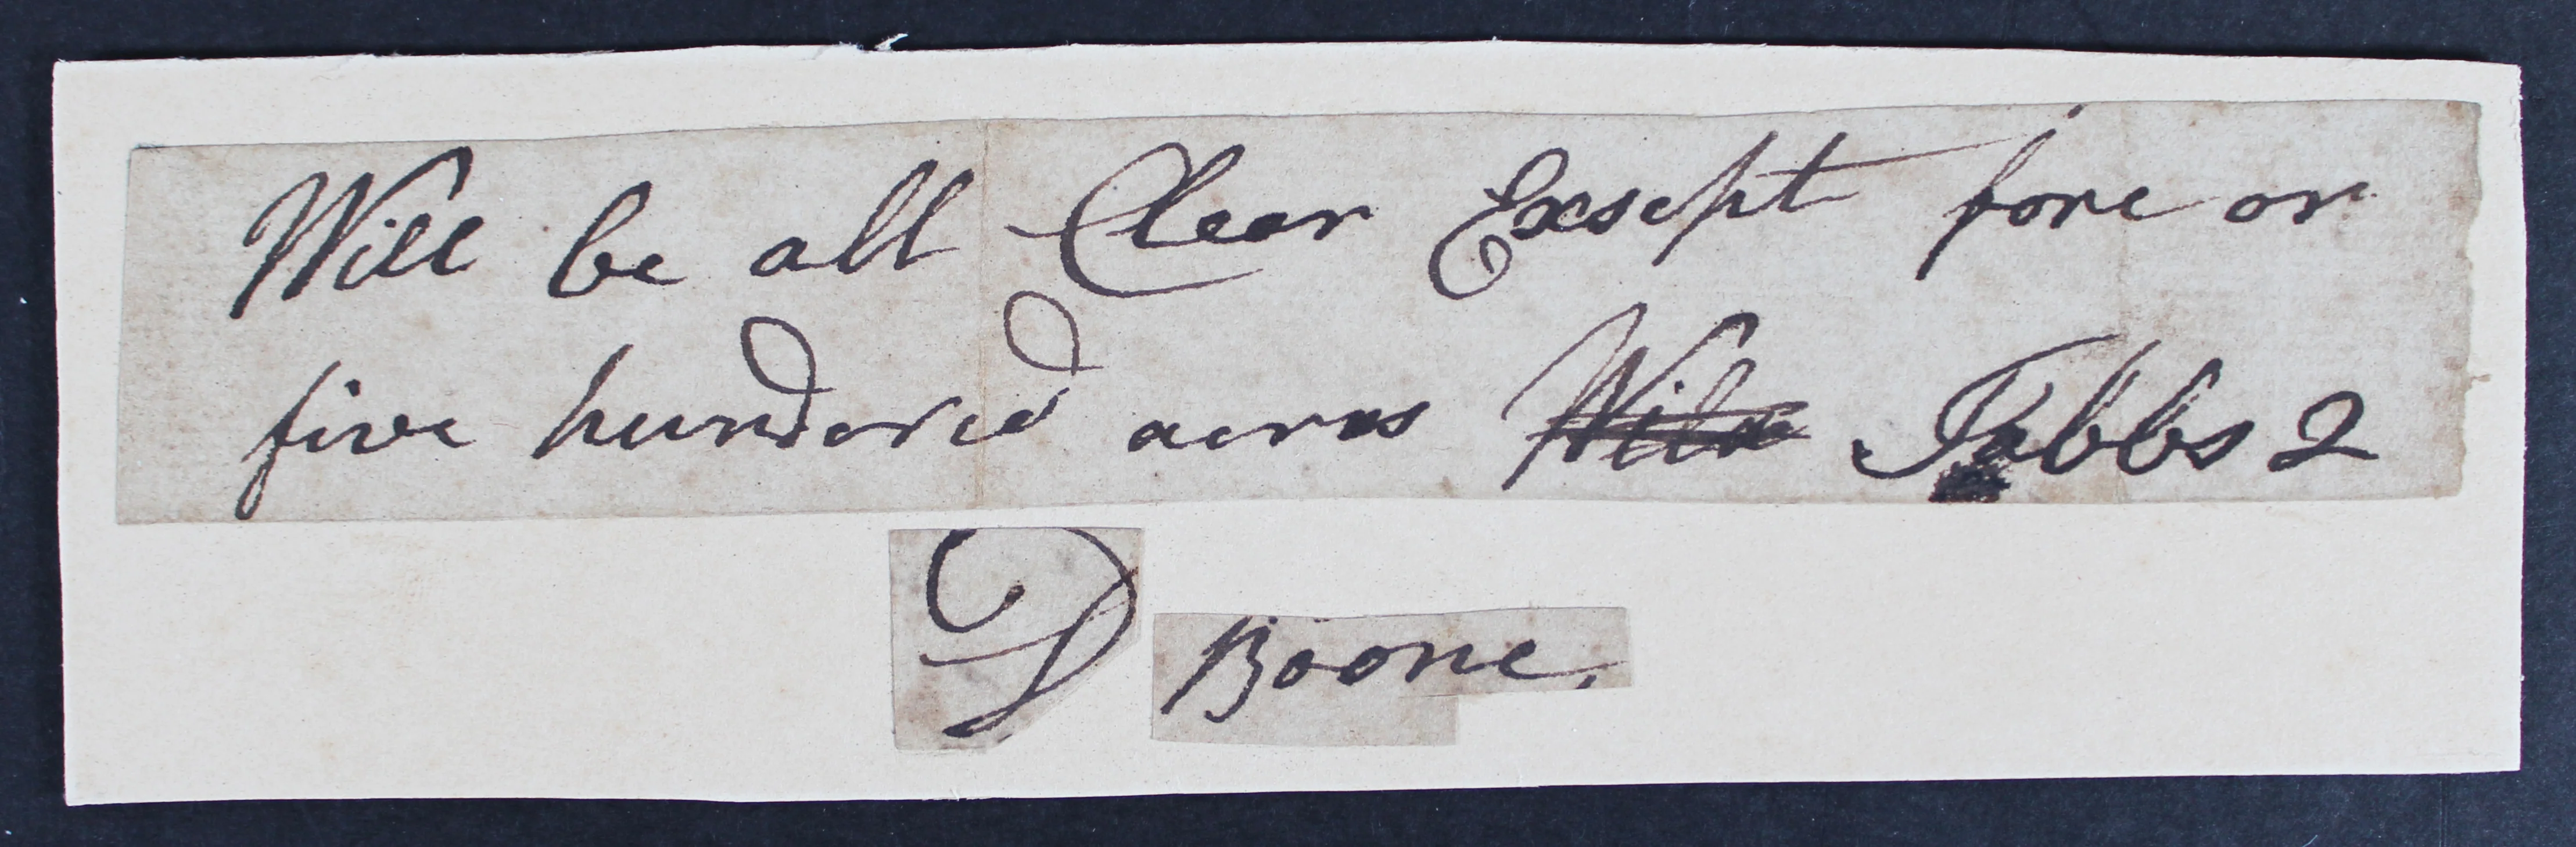 Will be all Clear Exsept fore or
five hundered acres Tabbs 2
D Boone